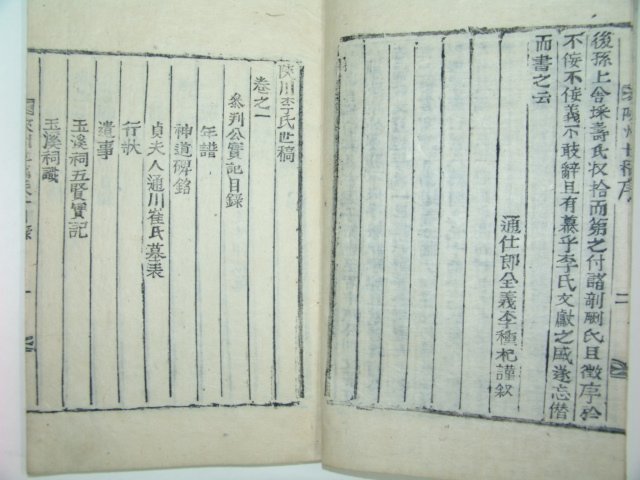 後孫上舍埰壽氏收拾而第之付諸剞劂氏且徵序於
不佞不佞義不敢辭且有慕乎李氏文獻之盛遂忘僭
而書之云
通仕郎全義李種杞謹敘
二
陜川李氏世稿
卷之一
參判公實記目錄
年譜
神道碑銘
貞夫人通川崔氏墓表
行狀
遺事
玉溪祠五賢實記
玉溪祠議
一